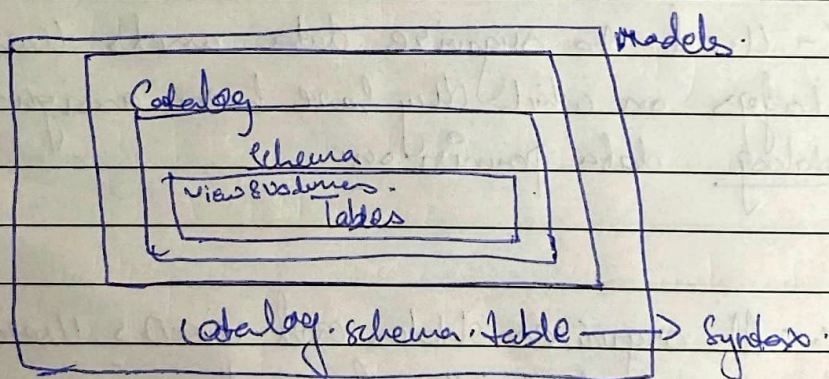 models.
Catalog
Schema
views & volumes.
Tables
Catalog.schema.table → Syntax.